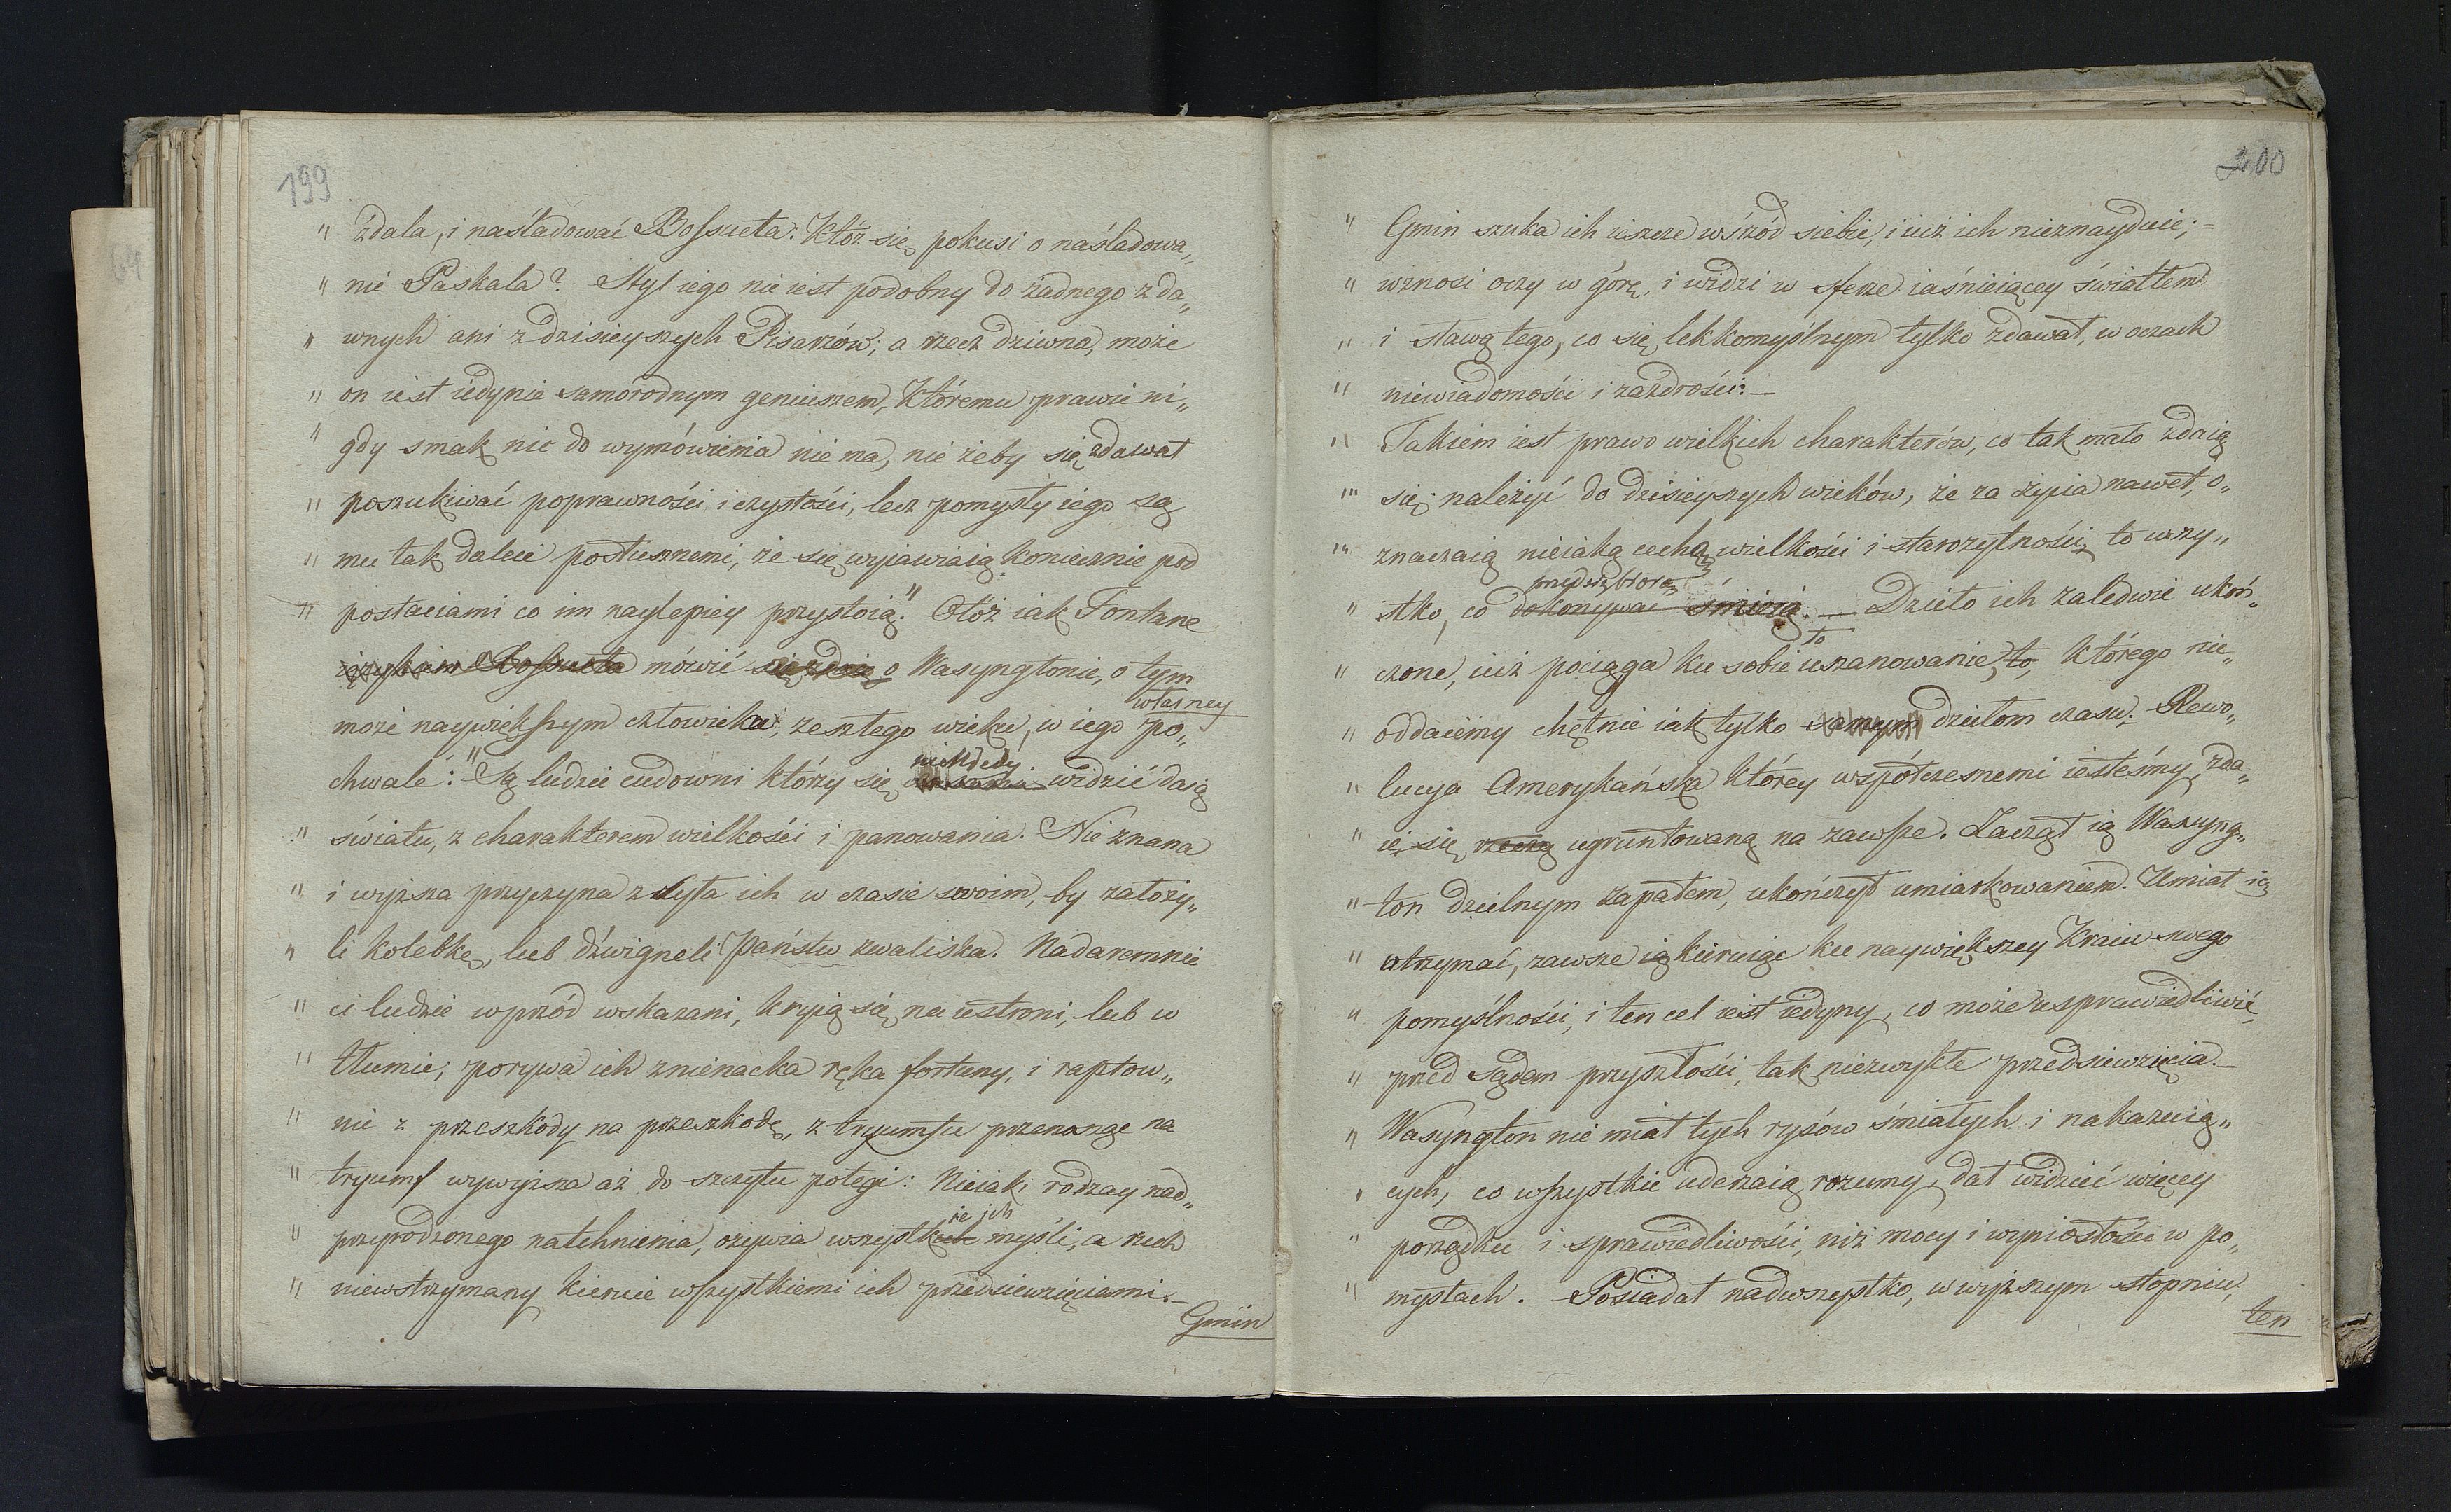 199
„ zdala, i naśladować Bossueta. Któż się pokusi o naśladowa„
„ nie Paskala? Styl iego nie iest podobny do żadnego z da„
„ wnych ani z dzisieyszych Pisarzów; a rzecz dziwna, może
„ on iest iedynie samorodnym geniuszem, któremu prawie ni„
„ gdy smak nic do wymówienia nie ma, nie żeby się zdawał
„ poszukiwać poprawności i czystości, lecz pomysły iego są
„ mu tak dalece posłusznemi, że się wyiawiaią koniecznie pod
„ postaciami co im naylepiey przystoią." Otóż iak Fontane
ięzykiem Bossueta mówić się zdaie o Wasyngtonie, o tym
własney
może naywiększym człowieku, zeszłego wieku, w iego po„
niekiedy
chwale: "Są ludzie cudowni którzy się widzić daią
„ światu, z charakterem wielkości i panowania. Nie znana
„ i wyższa przyczyna zsyła ich w czasie swoim, by założy„
„ li kolebkę, lub dźwigneli Państw zwaliska. Nadaremnie
„ ci ludzie wprzód wskazani, kryią się na ustroni, lub w
„ tłumie; porywa ich znienacka ręka fortuny, i raptow„
„ nie z przeszkody na przeszkodę, z tryumfu przenosząc na
„ tryumf wywyższa aż do szczytu potęgi: Nieiaki rodzay nad„
ie ich
„ przyrodzonego natchnienia, ożywia wszystkich myśli, a ruch
„ niewstrzymany kieruie wszystkiemi ich przedsięwzięciami.—
Gmin
200
„ Gmin szuka ich ieszcze wśrzód siebie, i iuż ich nieznayduie; =
„ wznosi oczy w górę, i widzi w sferze iaśnieiącey światłem
„ i sławą tego, co się lekkomyślnym tylko zdawał, w oczach
„ niewiadomości i zazdrości:—
„ Takiem iest prawo wielkich charakterów, co tak mało zdaią
„ się należyć do dzisieyszych wieków, że za życia nawet, o„
„ znaczaią nieiaką cechą wielkości i starożytności, to wszy„
„ stko, co dokonywać śmieią. — Dzieło ich zaledwie ukoń„
to
„ czone, iuż pociąga ku sobie uszanowanie, to, którego nie„
„ oddaiemy chętnie iak tylko samym dziełom czasu. Rewo„
„ lucya Amerykańska którey współczesnemi iesteśmy, zda„
„ ie się rzeczą ugruntowaną na zawsze. Zaczął ią Waszyng„
„ ton dzielnym zapałem, ukończył umiarkowaniem. Umiał ią
„ utrzymać, zawsze ią kieruiąc ku naywiększey kraiu swego
„ pomyślności, i ten cel iest iedyny, co może usprawiedliwić,
„ przed sądem przyszłości, tak niezwykłe przedsięwzięcia.—
„ Wasyngton nie miał tych rysów śmiałych i nakazuią„
„ cych, co wszystkie uderzaią rozumy, dał widzieć więcey
„ porządku i sprawiedliwości, niż mocy i wyniosłości w po„
„ mysłach. Posiadał nadwszystko, w wyższym stopniu,
ten